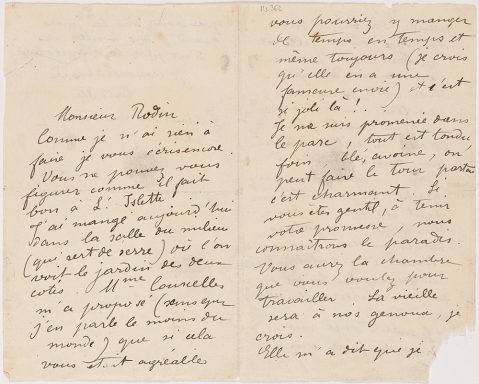 Monsieur Rodin
Comme je n'ai rien à
faire je vous écris encore.
Vous ne pouvez vous
figurer comme il fait
bon à L'Islette
J'ai mangé aujourd'hui
dans la salle du milieu
(qui sert de serre) où l'on
voit le jardin des deux
cotés. Mme Courcelles
m'a proposé (sans que
j'en parle le moins du
monde) que si cela
vous était agréable
vous pourriez y manger
de temps en temps et
même toujours (je crois
qu'elle en a une
fameuse envie) et c'est
si joli là!..
Je me suis promenée dans
le parc, tout est tondu
foin, blé, avoine, on
peut faire le tour partout
c'est charmant. Si
vous êtes gentil, à tenir
votre promesse, nous
connaîtrons le paradis.
Vous aurez la chambre
que vous voulez pour
travailler. La vieille
sera à nos genoux, je
crois.
Elle m'a dit que je